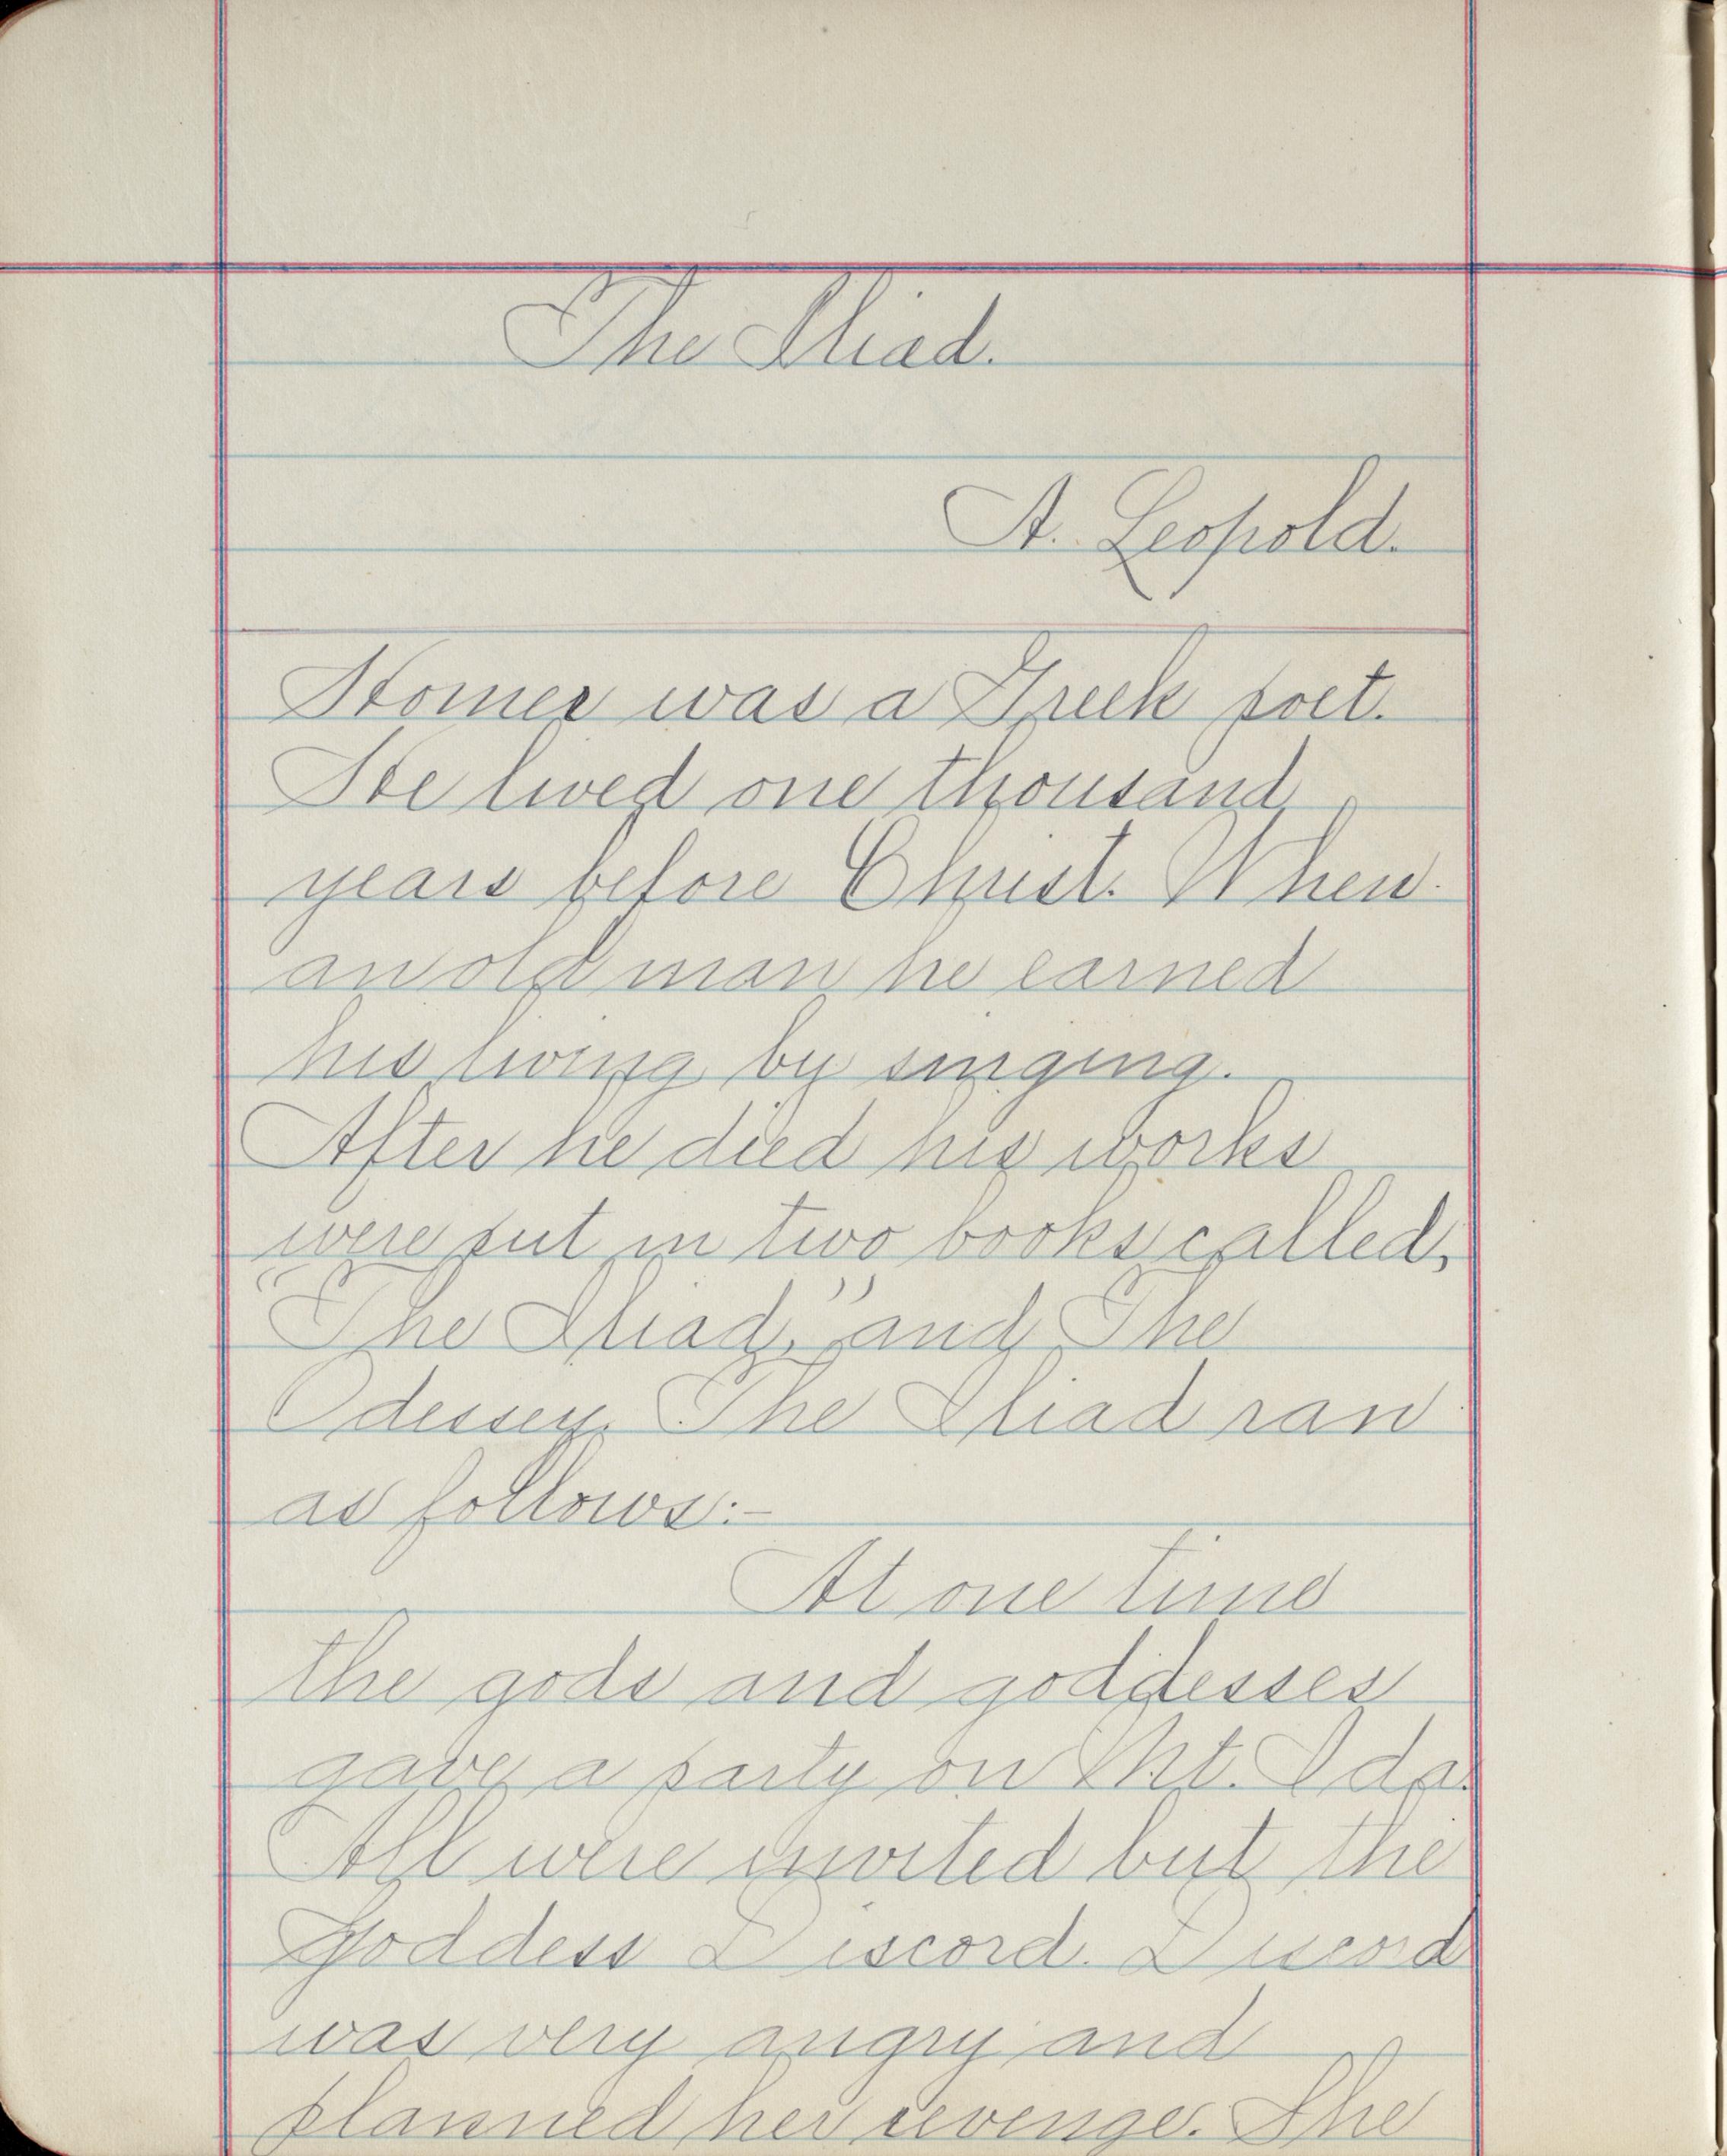 The Iliad.
A. Leopold.
Homer was a Greek poet.
He lived one thousand
years before Christ. When
an old man he earned
his living by singing.
After he died his works
were put in two books called,
"The Iliad," and The
Odessey. The Iliad ran
as follows:-
At one time
the gods and goddesses
gave a party on Mt. Ida.
All were invited but the
goddess Discord. Discord
was very angry and
planned her revenge. She